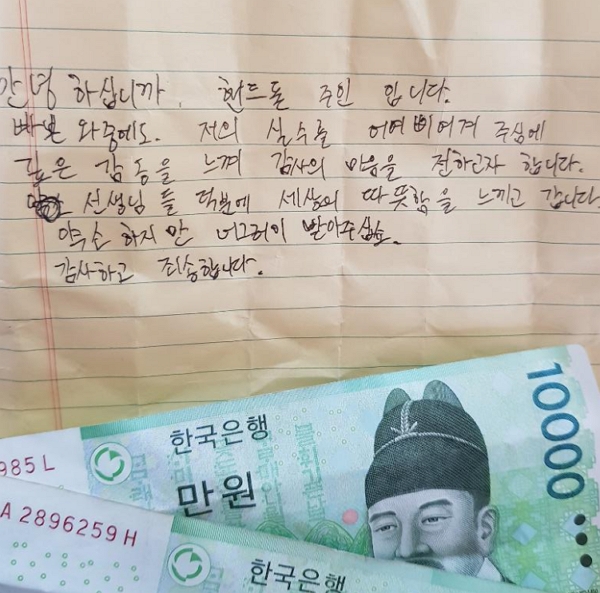 안녕 하십니까. 핸드폰 주인 입니다.
바쁜 와중에도. 저의 실수를 어여삐여겨 주심에
깊은 감동을 느껴 감사의 마음을 전하고자 합니다.
선생님들 덕분에 세상의 따뜻함을 느끼고 갑니다.
약소 하지만 너그러이 받아주십쇼.
감사하고 죄송합니다.
10000
한국은행
만원
985 L
A 2896259 H
한국은행